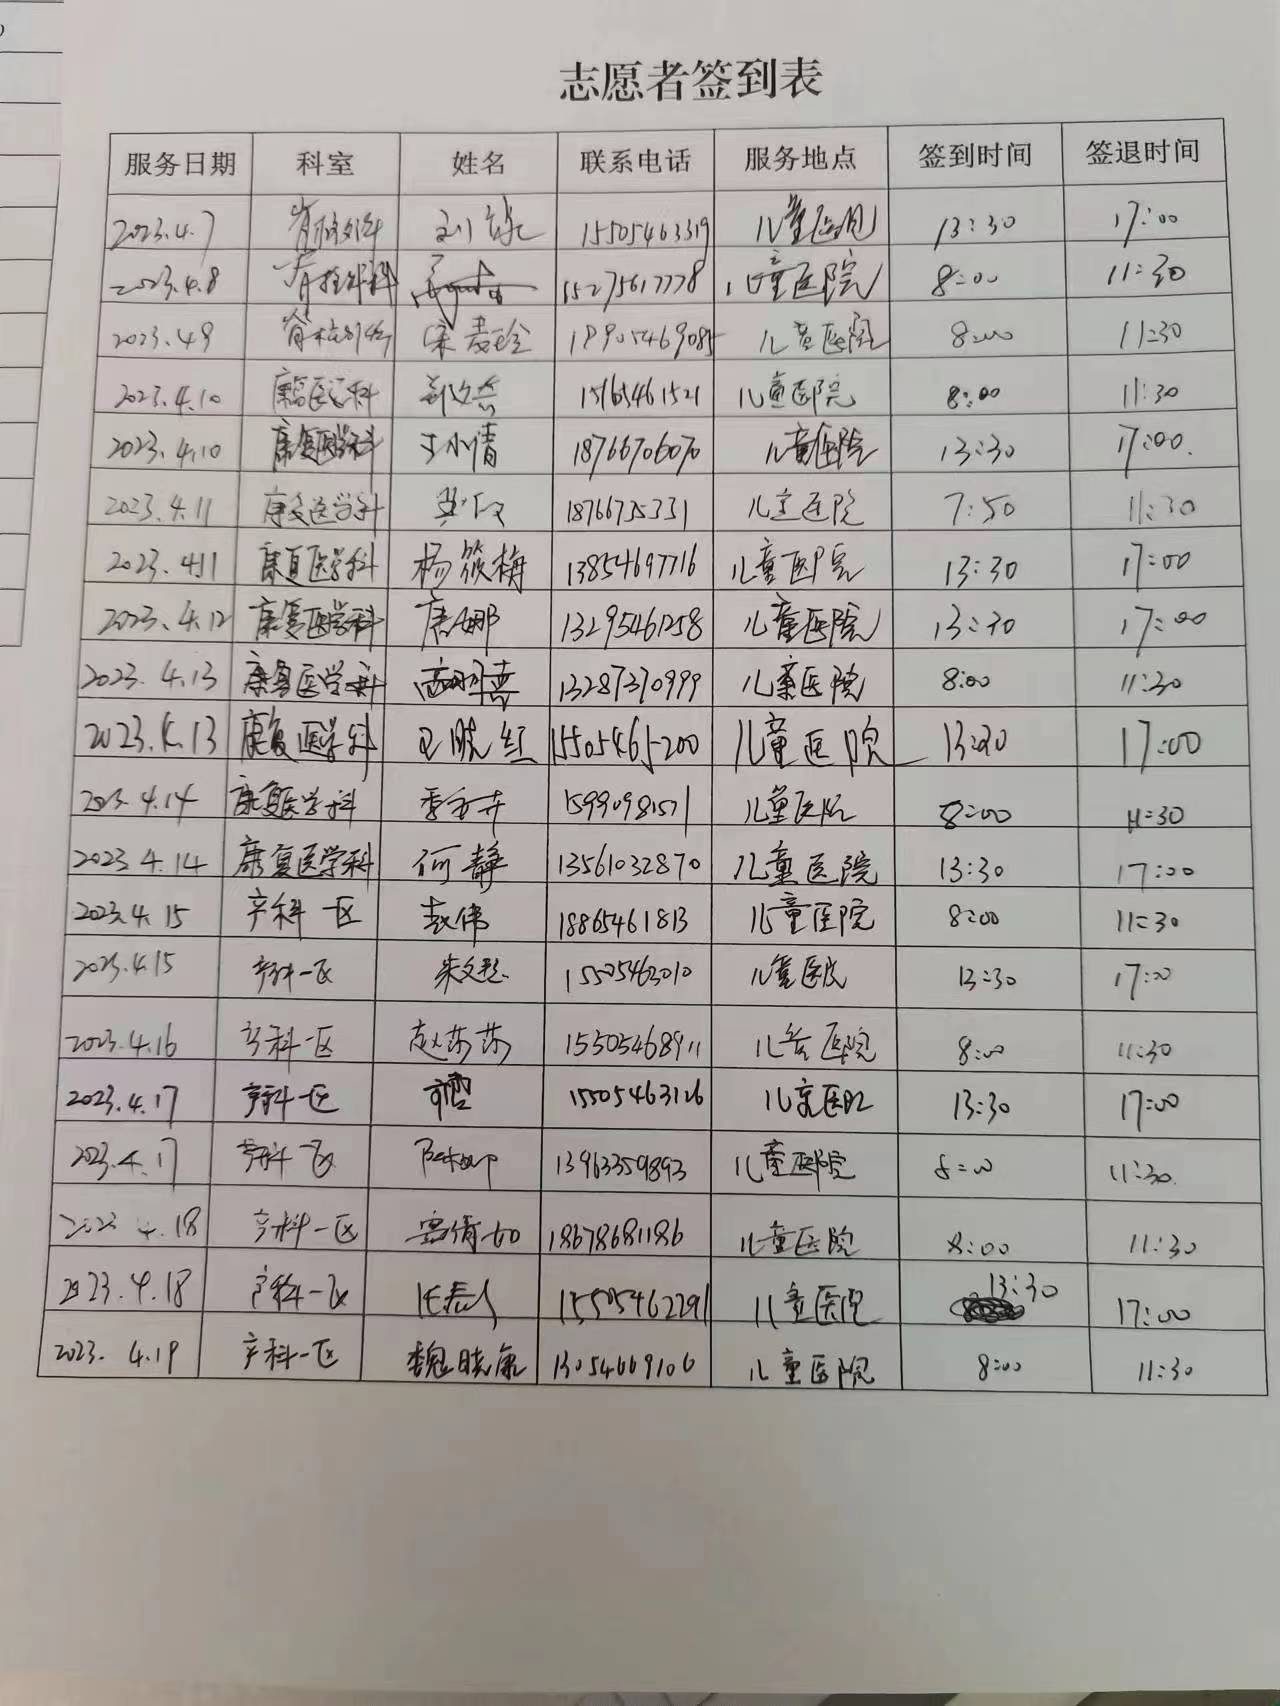 志愿者签到表
服务日期 科室 姓名 联系电话 服务地点 签到时间 签退时间
2023.4.7 脊柱外科 15505463319 儿童医院 13:30 17:00
2023.4.8 脊柱外科 15275617778 儿童医院 8:00 11:30
2023.4.9 脊柱外科 18905469085 儿童医院 8:00 11:30
2023.4.10 康复医学科 15165461521 儿童医院 8:00 11:30
2023.4.10 康复医学科 于小倩 18766706070 儿童医院 13:30 17:00.
2023.4.11 康复医学科 18766735331 儿童医院 7:50 11:30
2023.4.11 康复医学科 杨筱梅 13854697716 儿童医院 13:30 17:00
2023.4.12 康复医学科 唐娜 13295461258 儿童医院 13:30 17:00
2023.4.13 康复医学科 13287370999 儿童医院 8:00 11:30
2023.4.13 康复医学科 王晓红 15505465200 儿童医院 13:30 17:00
2023.4.14 康复医学科 儿童医院 8:00 11:30
2023.4.14 康复医学科 何静 13561032870 儿童医院 13:30 17:00
2023.4.15 产科一区 赵伟 18865461813 儿童医院 8:00 11:30
2023.4.15 产科一区 15505462010 儿童医院 13:30 17:00
2023.4.16 产科一区 赵莎莎 15505468911 儿童医院 8:00 11:30
2023.4.17 产科一区 15505463126 儿童医院 13:30 17:00
2023.4.17 产科一区 13963359893 儿童医院 8:00 11:30.
2023 4.18 产科一区 18678681186 儿童医院 8:00 11:30
2023.4.18 产科一区 15505462291 儿童医院 13:30 17:00
2023. 4.19 产科一区 魏晓康 13054669106 儿童医院 8:00 11:30